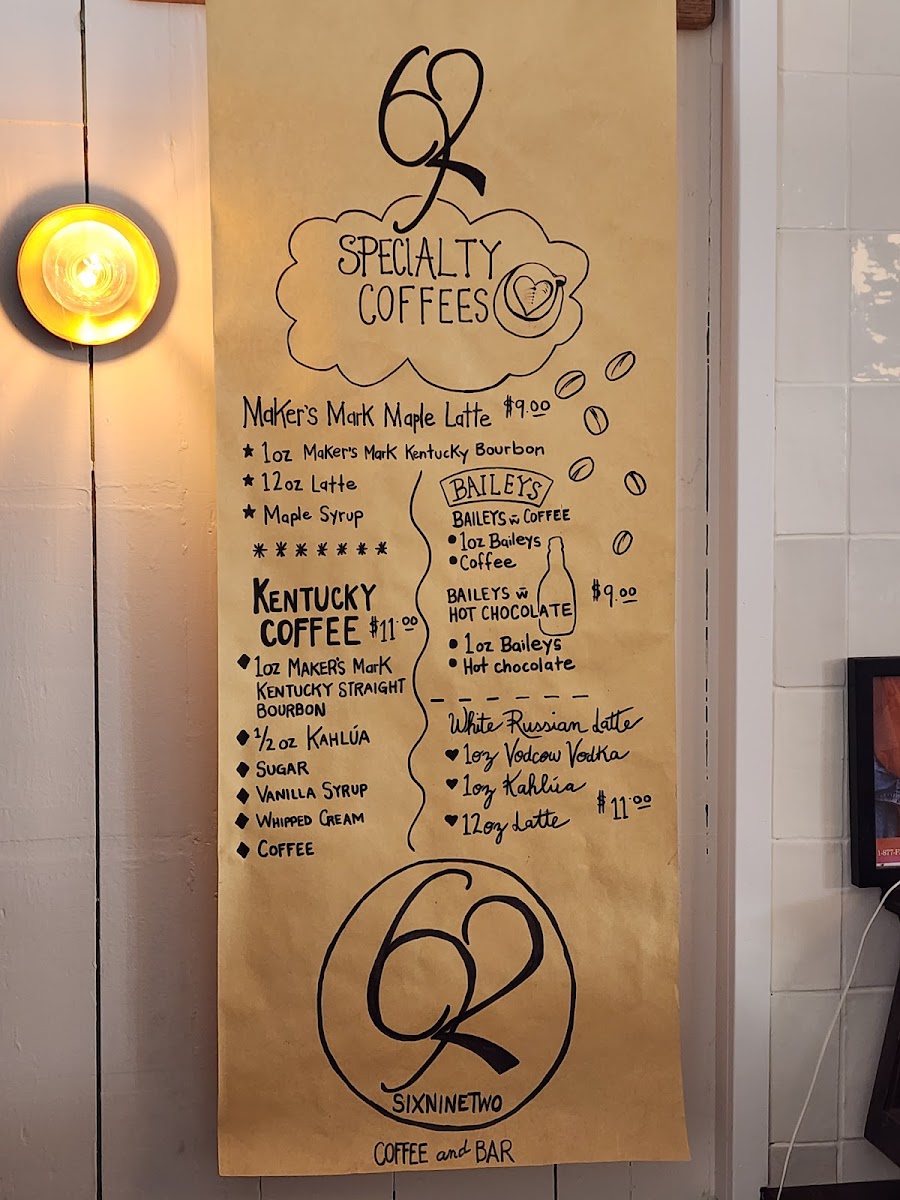 692
SPECIALTY
COFFEES
Maker's Mark Maple Latte $9.00
★ 1oz Maker's Mark Kentucky Bourbon
★ 12oz Latte
★ Maple Syrup
* * * * * * *
KENTUCKY
COFFEE $11.00
♦ 1oz MAKER'S MARK
KENTUCKY STRAIGHT
BOURBON
♦ 1/2 oz KAHLÚA
♦ SUGAR
♦ VANILLA SYRUP
♦ WHIPPED CREAM
♦ COFFEE
BAILEYS
BAILEYS w̄ COFFEE
• 1oz Baileys
• Coffee
BAILEYS w̄
HOT CHOCOLATE $9.00
• 1oz Baileys
• Hot chocolate
White Russian Latte
♥ 1oz Vodcow Vodka
♥ 1oz Kahlúa
$11.00
♥ 12oz Latte
692
SIXNINETWO
COFFEE and BAR